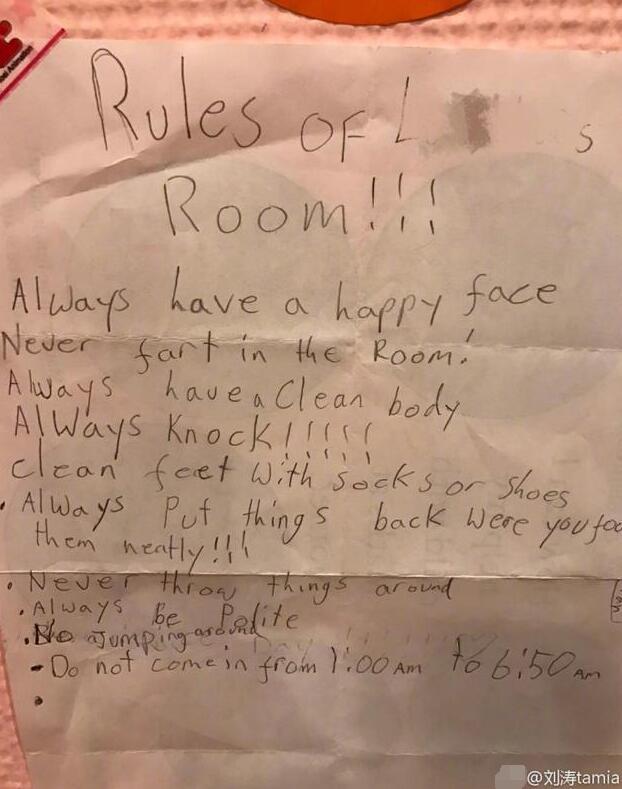 Rules OF L s
Room!!!
Always have a happy face
Never fart in the Room!
Always have a Clean body
Always Knock!!!!!
Clean feet with socks or shoes
• Always Put things back Were you
them neatly!!!
• Never throw things around
• Always be Polite
• No Jumping around
- Do not come in from 1:00 AM to 6:50 AM
•
@刘涛tamia